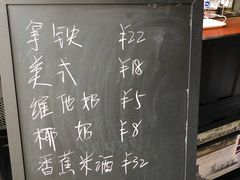 拿铁 ¥22
美式 ¥18
维他奶 ¥5
椰奶 ¥8
香蕉米酒 ¥32